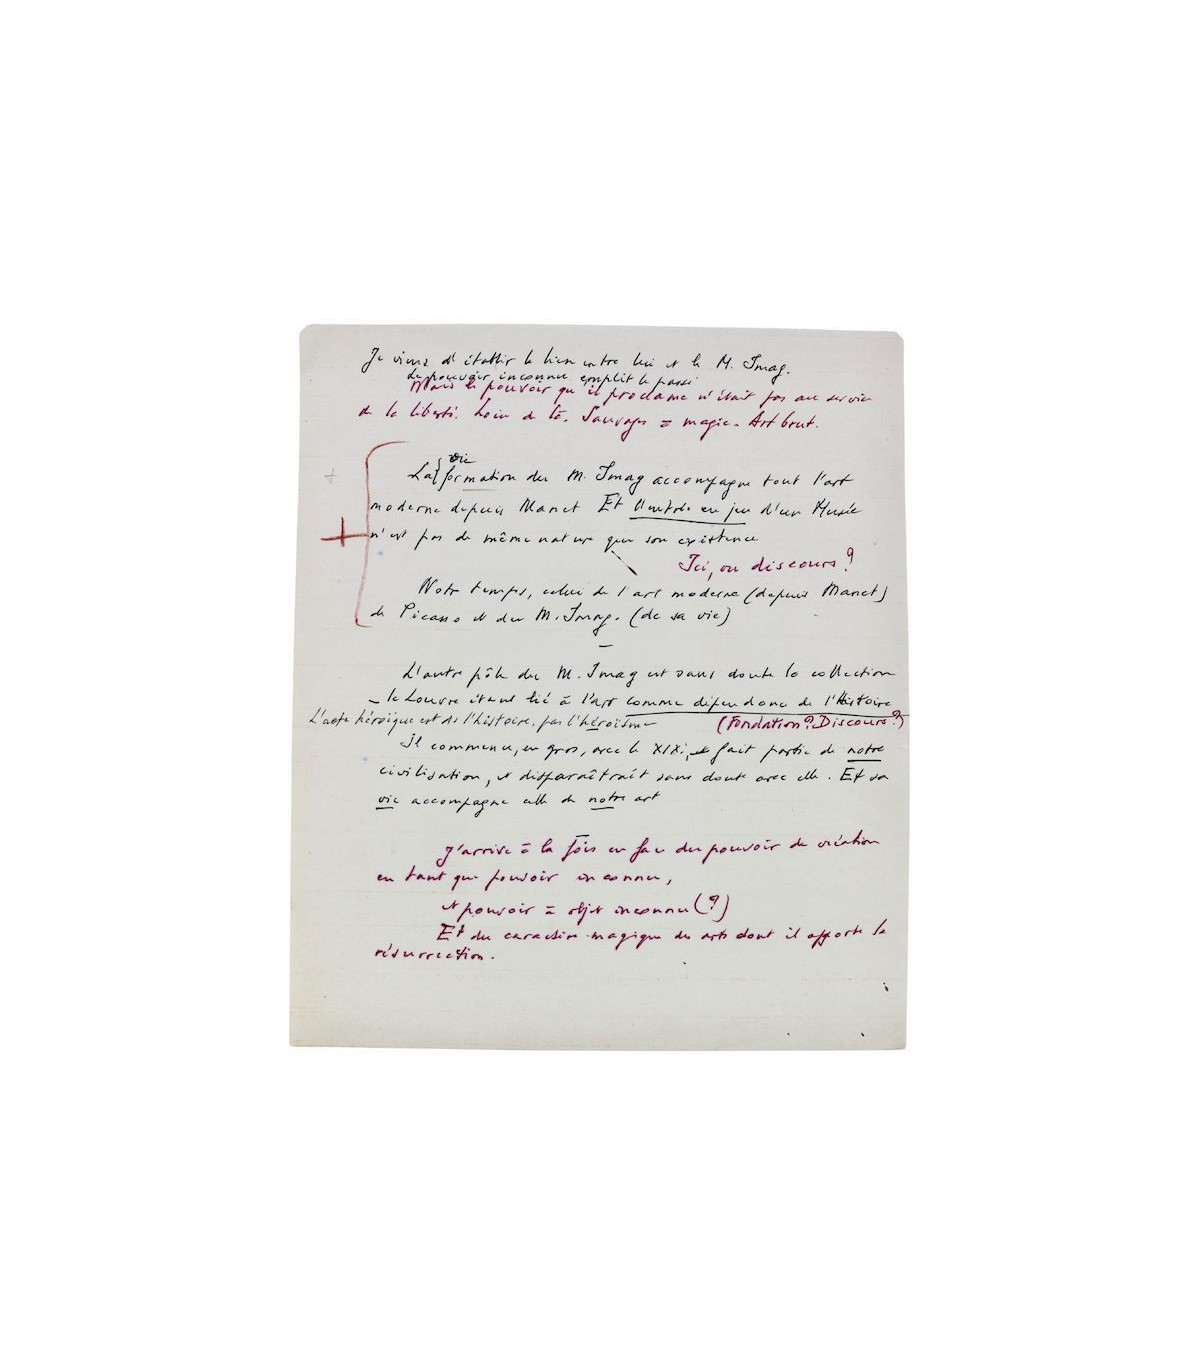 Je viens d'établir le lien entre lui et le M. Imag.
Le pouvoir inconnu emplit le passé
Mais le pouvoir qu'il proclame n'était pas au service
de la liberté. Loin de là. Sauvages = magie. Art brut.
vie
La formation du M. Imag accompagne tout l'art
moderne depuis Manet Et l'entrée en jeu d'un Musée
n'est pas de même nature que son existence
Ici, ou discours ?
Notre temps, celui de l'art moderne (depuis Manet)
de Picasso et du M. Imag. (de sa vie)
L'autre pôle du M. Imag est sans doute la collection
– le Louvre étant lié à l'art comme dépendance de l'Histoire
L'acte héroïque est de l'histoire, pas l'héroïsme (Fondation ? Discours ?)
Il commence, en gros, avec le XIXe, et fait partie de notre
civilisation, et disparaîtrait sans doute avec elle. Et sa
vie accompagne celle de notre art
J'arrive à la fois en face du pouvoir de création
en tant que pouvoir inconnu,
et pouvoir = objet inconnu (?)
Et du caractère magique des arts dont il apporte la
résurrection.